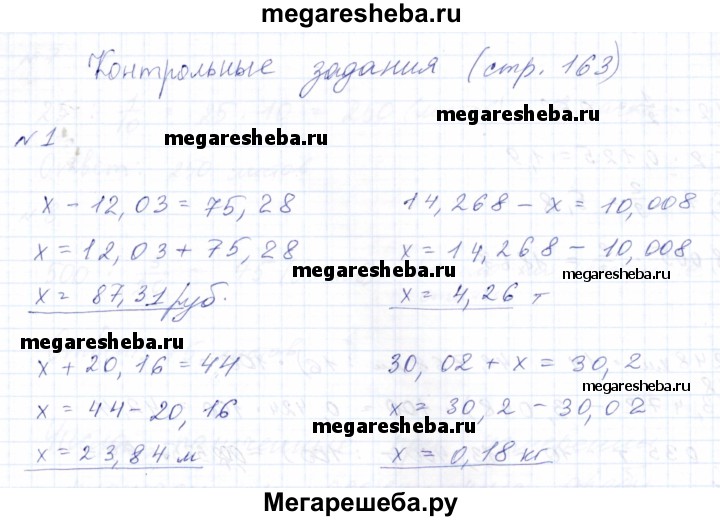 megaresheba.ru
Контрольные задания (стр. 163)
megaresheba.ru
№1
megaresheba.ru
x - 12,03 = 75,28
x = 12,03 + 75,28
megaresheba.ru
x = 87,31 руб.
14,268 - x = 10,008
x = 14,268 - 10,008
megaresheba.ru
x = 4,26 т
megaresheba.ru
x + 20,16 = 44
x = 44 - 20,16
x = 23,84 м
30,02 + x = 30,2
megaresheba.ru
x = 30,2 - 30,02
megaresheba.ru
x = 0,18 кг
Мегарешеба.ру